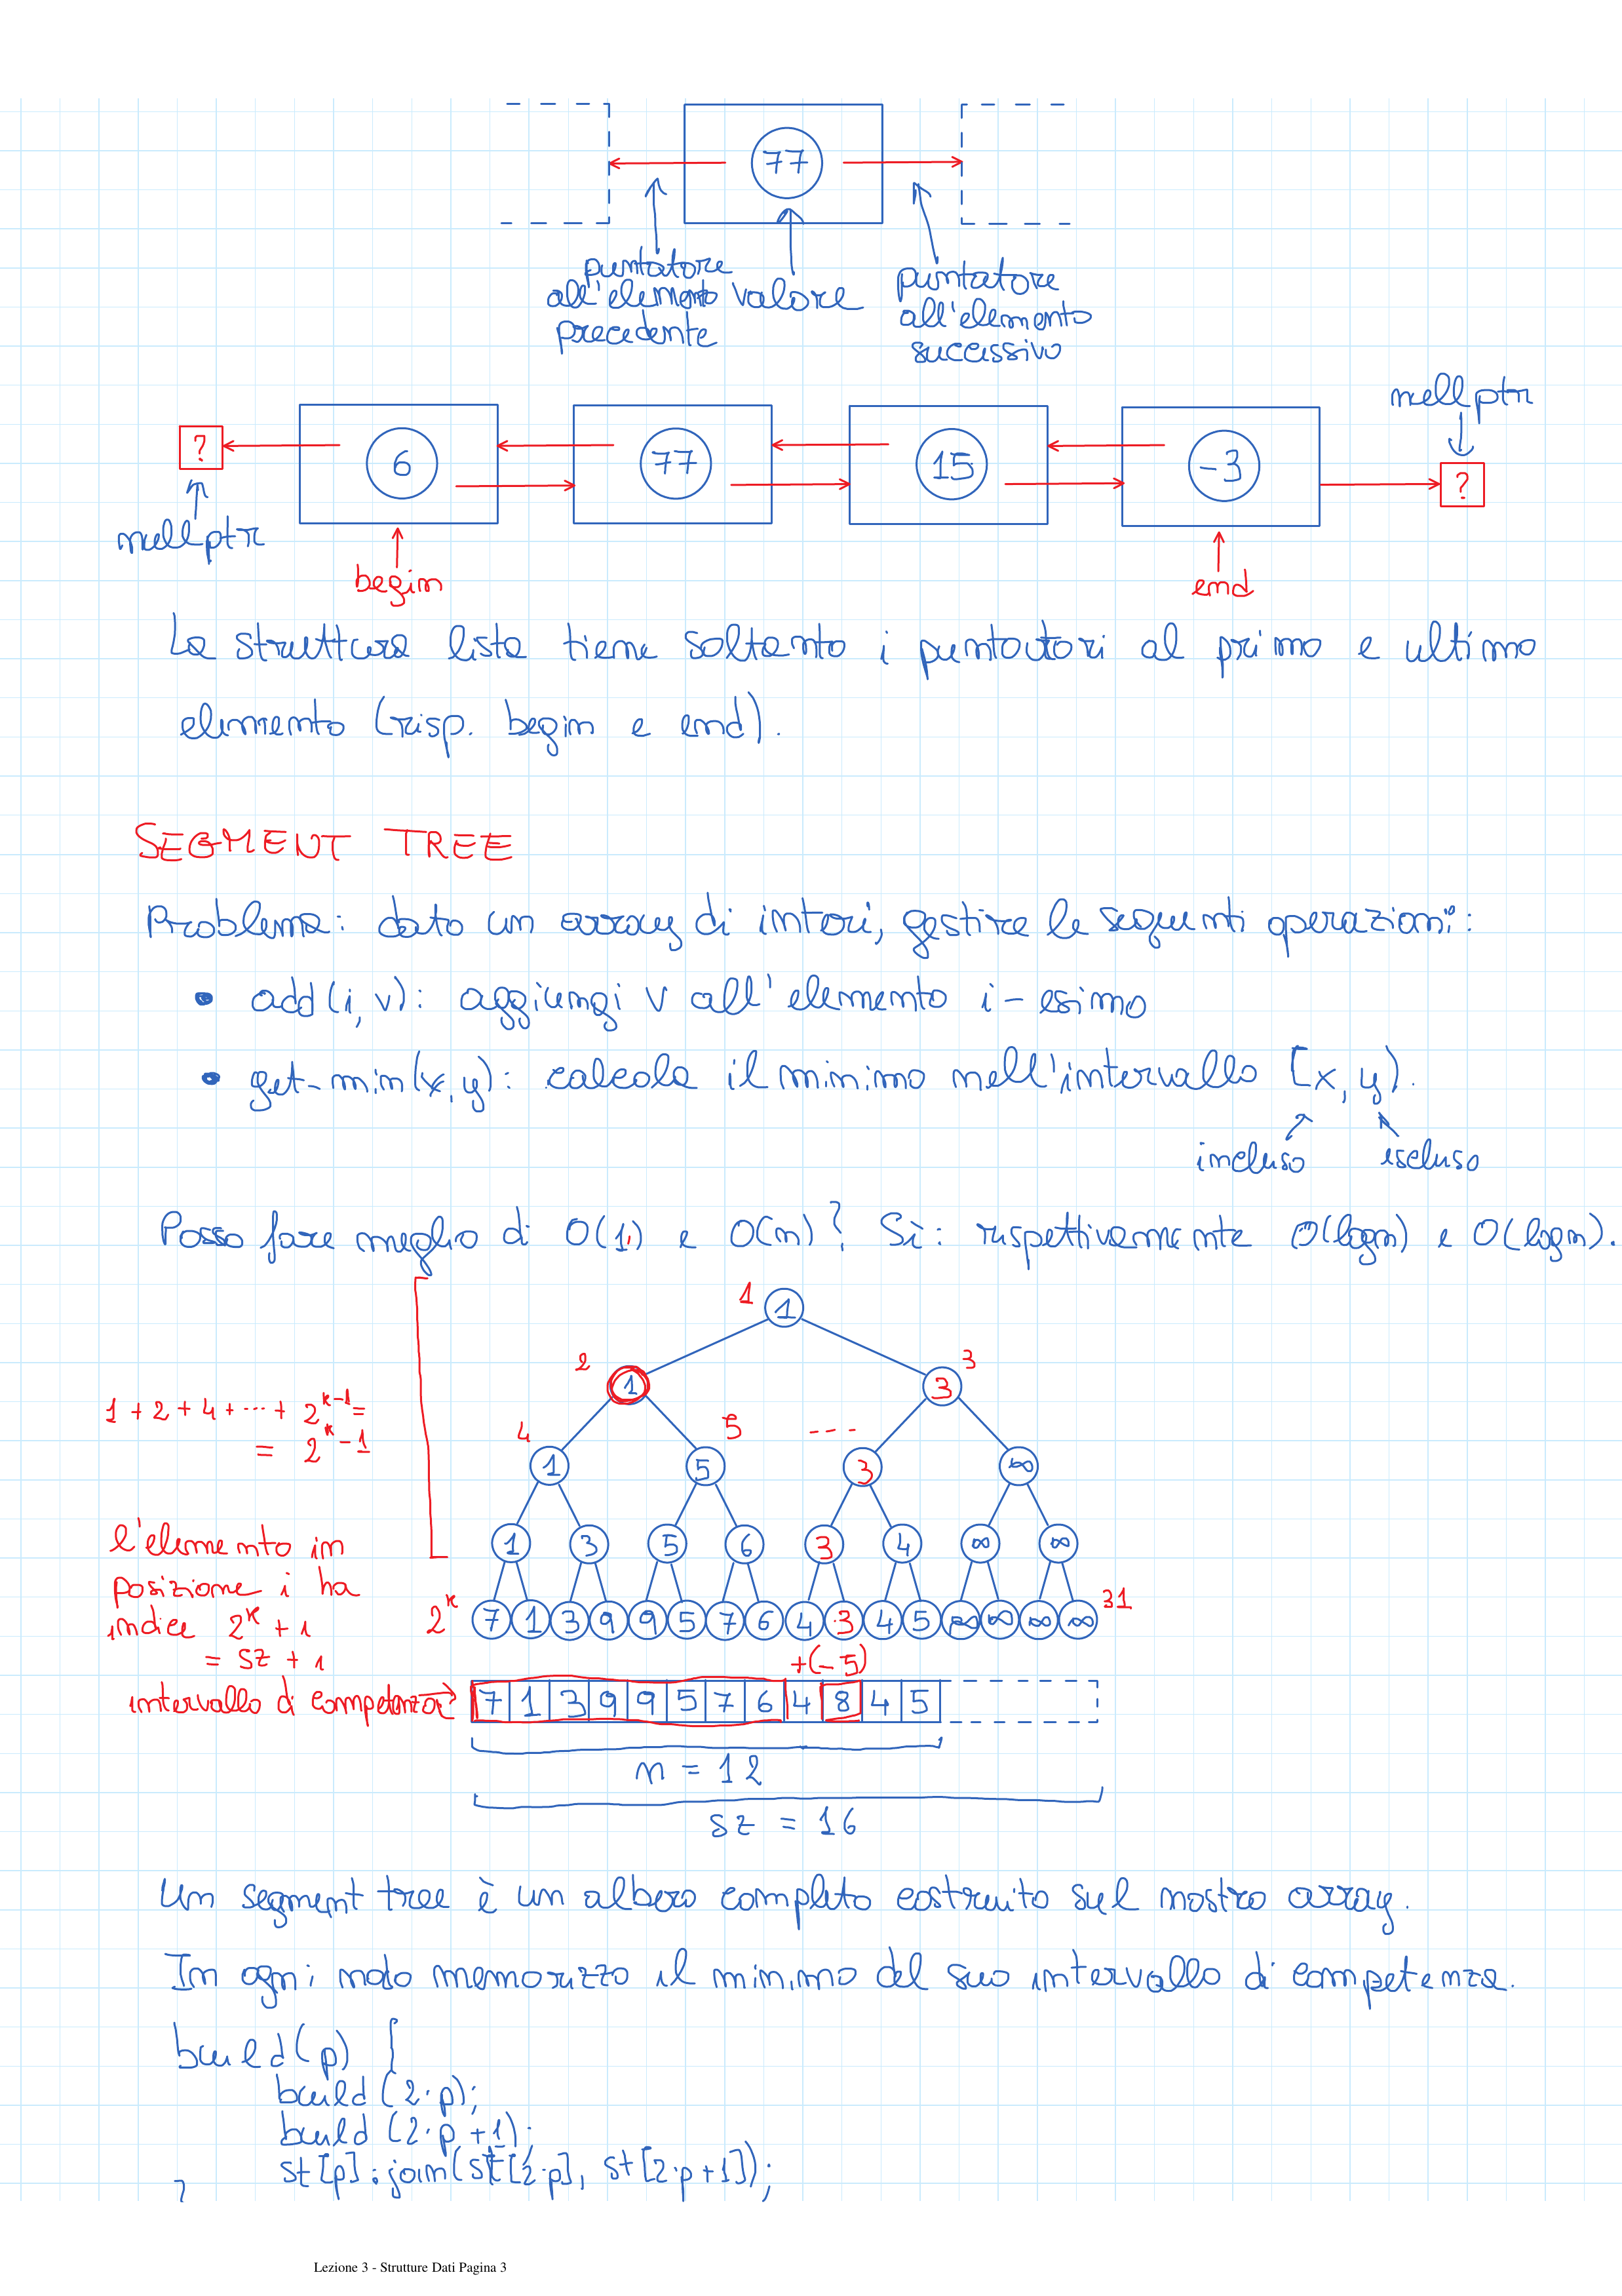 77
puntatore
all'elemento
precedente
valore
puntatore
all'elemento
successivo
nullptr
? 6 77 15 -3 ?
nullptr
begin end
La struttura lista tiene soltanto i puntatori al primo e ultimo
elemento (risp. begin e end).
SEGMENT TREE
Problema: dato un array di interi, gestire le seguenti operazioni:
• add(i, v): aggiungi v all'elemento i-esimo
• get-min(x, y): calcola il minimo nell'intervallo [x, y).
incluso escluso
Posso fare meglio di O(1) e O(n)? Sì: rispettivamente O(log n) e O(log n).
1 1
2 1 3 3
1 + 2 + 4 + ... + 2^{k-1} =
= 2^k - 1
4 5 ---
1 5 3 ∞
1 3 5 6 3 4 ∞ ∞
l'elemento in
posizione i ha
indice 2^k + i
= sz + i
2^k 7 1 3 9 9 5 7 6 4 3 4 5 ∞ ∞ ∞ ∞ 31
+(-5)
intervallo di competenza
7 1 3 9 9 5 7 6 4 8 4 5
n = 12
sz = 16
Un segment tree è un albero completo costruito sul nostro array.
In ogni nodo memorizzo il minimo del suo intervallo di competenza.
build(p) {
build(2·p);
build(2·p+1);
st[p].join(st[2·p], st[2·p+1]);
}
Lezione 3 - Strutture Dati Pagina 3